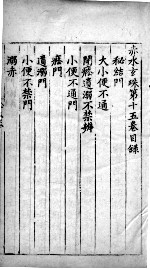 赤水玄珠第十五卷目錄
秘結門
大小便不通
閉癃遺溺不禁辨
小便不通門
癃門
遺溺門
小便不禁門
溺赤